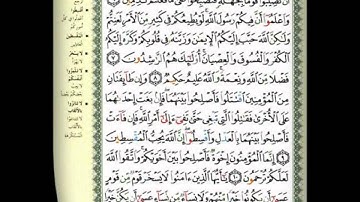 أَن تُصِيبُوا قَوْمًا بِجَهَٰلَةٍ فَتُصْبِحُوا
وَاعْلَمُوا أَنَّ فِيكُمْ رَسُولَ اللَّهِ لَوْ يُطِيعُكُمْ فِي كَثِيرٍ مِّنَ الْأَمْرِ لَعَنِتُّمْ
وَلَٰكِنَّ اللَّهَ حَبَّبَ إِلَيْكُمُ الْإِيمَٰنَ وَزَيَّنَهُ فِي قُلُوبِكُمْ وَكَرَّهَ إِلَيْكُمُ
الْكُفْرَ وَالْفُسُوقَ وَالْعِصْيَانَ أُولَٰئِكَ هُمُ الرَّٰشِدُونَ ٧
فَضْلًا مِّنَ اللَّهِ وَنِعْمَةً وَاللَّهُ عَلِيمٌ حَكِيمٌ ٨ وَإِن طَائِفَتَانِ
مِنَ الْمُؤْمِنِينَ اقْتَتَلُوا فَأَصْلِحُوا بَيْنَهُمَا فَإِن بَغَتْ إِحْدَىٰهُمَا
عَلَى الْأُخْرَىٰ فَقَٰتِلُوا الَّتِي تَبْغِي حَتَّىٰ تَفِيءَ إِلَىٰ أَمْرِ اللَّهِ فَإِن فَاءَتْ
فَأَصْلِحُوا بَيْنَهُمَا بِالْعَدْلِ وَأَقْسِطُوا إِنَّ اللَّهَ يُحِبُّ الْمُقْسِطِينَ
٩ إِنَّمَا الْمُؤْمِنُونَ إِخْوَةٌ فَأَصْلِحُوا بَيْنَ أَخَوَيْكُمْ وَاتَّقُوا اللَّهَ
لَعَلَّكُمْ تُرْحَمُونَ ١٠ يَٰأَيُّهَا الَّذِينَ ءَامَنُوا لَا يَسْخَرْ قَوْمٌ مِّن قَوْمٍ
عَسَىٰ أَن يَكُونُوا خَيْرًا مِّنْهُمْ وَلَا نِسَاءٌ مِّن نِّسَاءٍ عَسَىٰ أَن يَكُنَّ خَيْرًا